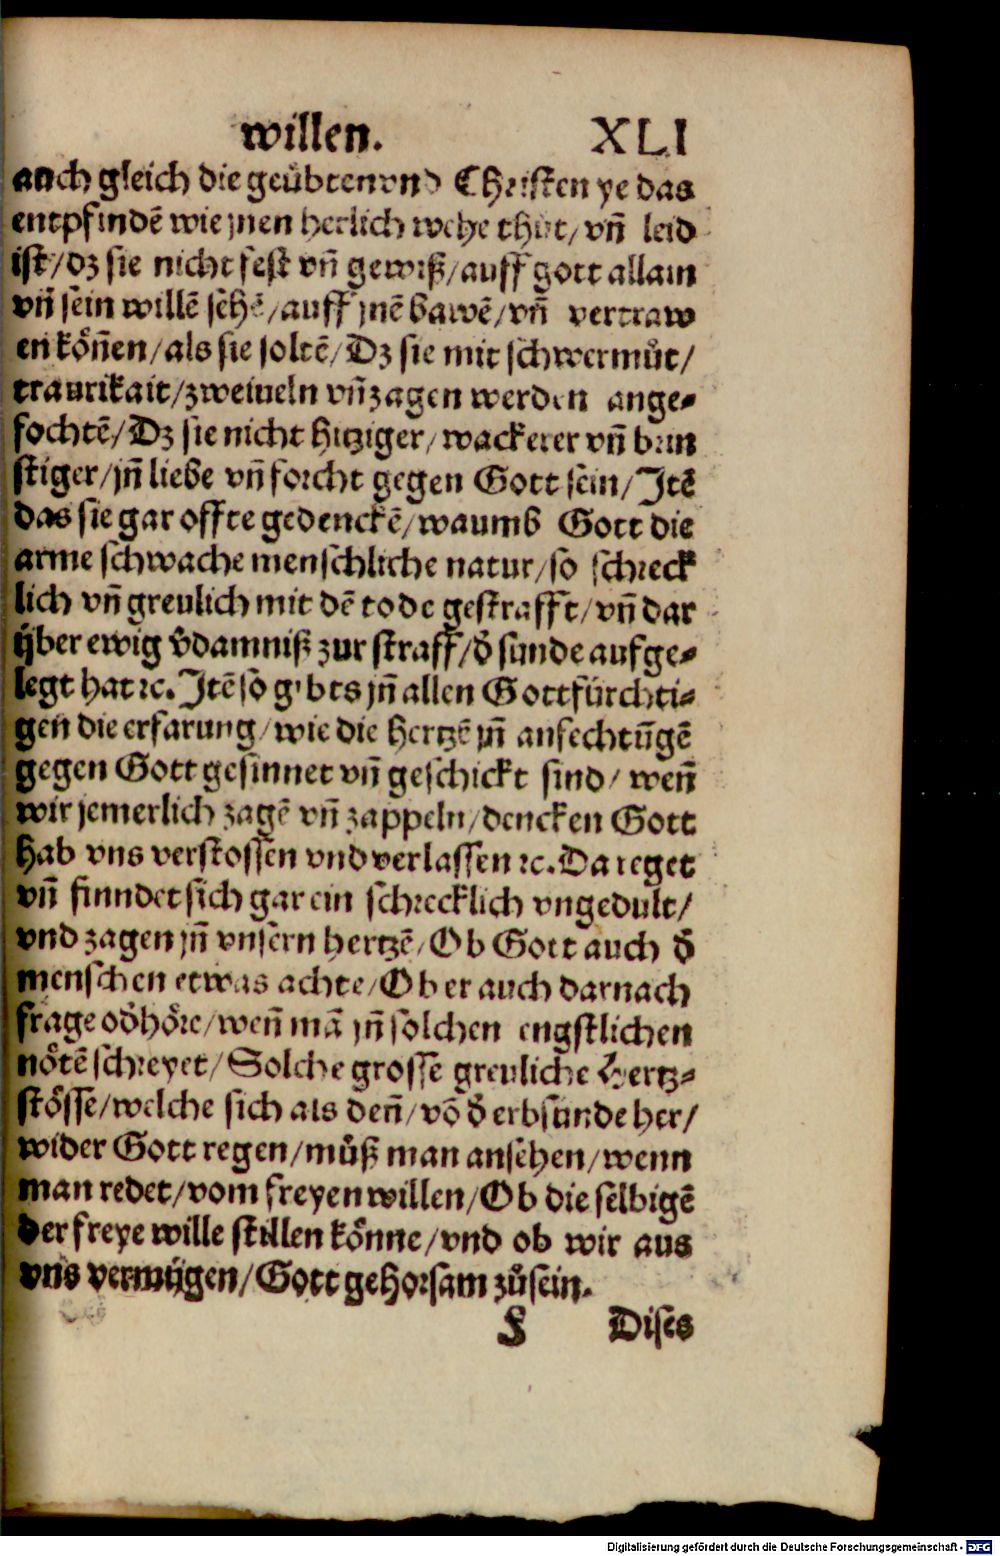 willen. XLI
auch gleich die geuͤbten vnd Christen ye das
entpfindē wie jnen herlich wehe thut/ vn̄ leid
ist/ dz sie nicht fest vn̄ gewiß/ auff gott allain
vn̄ sein willē sehē/ auff jnē bawē/ vn̄ vertraw
en koͤn̄en/ als sie soltē/ Dz sie mit schwermuͦt/
traurikait/ zweiueln vn̄ zagen werden ange⸗
fochtē/ Dz sie nicht hitziger/ wackerer vn̄ brin
stiger/ jn̄ liebe vn̄ forcht gegen Gott sein/ Jtē
das sie gar offte gedenckē/ waumb Gott die
arme schwache menschliche natur/ so schreck
lich vn̄ greulich mit dē tode gestrafft/ vn̄ dar
ÿber ewig v̄damniß zur straff/ d̄ sunde aufge⸗
legt hat ꝛc. Jtē so gibts jn̄ allen Gottfürchti⸗
gen die erfarung/ wie die hertzē jn̄ anfechtūgē
gegen Gott gesinnet vn̄ geschickt sind/ wen̄
wir jemerlich zagē vn̄ zappeln/ dencken Gott
hab vns verstossen vnd verlassen ꝛc. Da reget
vn̄ finndet sich gar ein schrecklich vngedult/
vnd zagen jn̄ vnsern hertzē/ Ob Gott auch d̄
menschen etwas achte/ Ob er auch darnach
frage od̄ hoͤre/ wen̄ mā jn̄ solchen engstlichen
noͤtē schreyet/ Solche grosse greuliche Hertz⸗
stoͤsse/ welche sich als den̄/ vō d̄ erbsunde her/
wider Gott regen/ muͦß man ansehen/ wenn
man redet/ vom freyen willen/ Ob die selbigē
der freye wille stillen koͤnne/ vnd ob wir aus
vns vermÿgen/ Gott gehorsam zuͦ sein.
F Dises
Digitalisierung gefördert durch die Deutsche Forschungsgemeinschaft - DFG